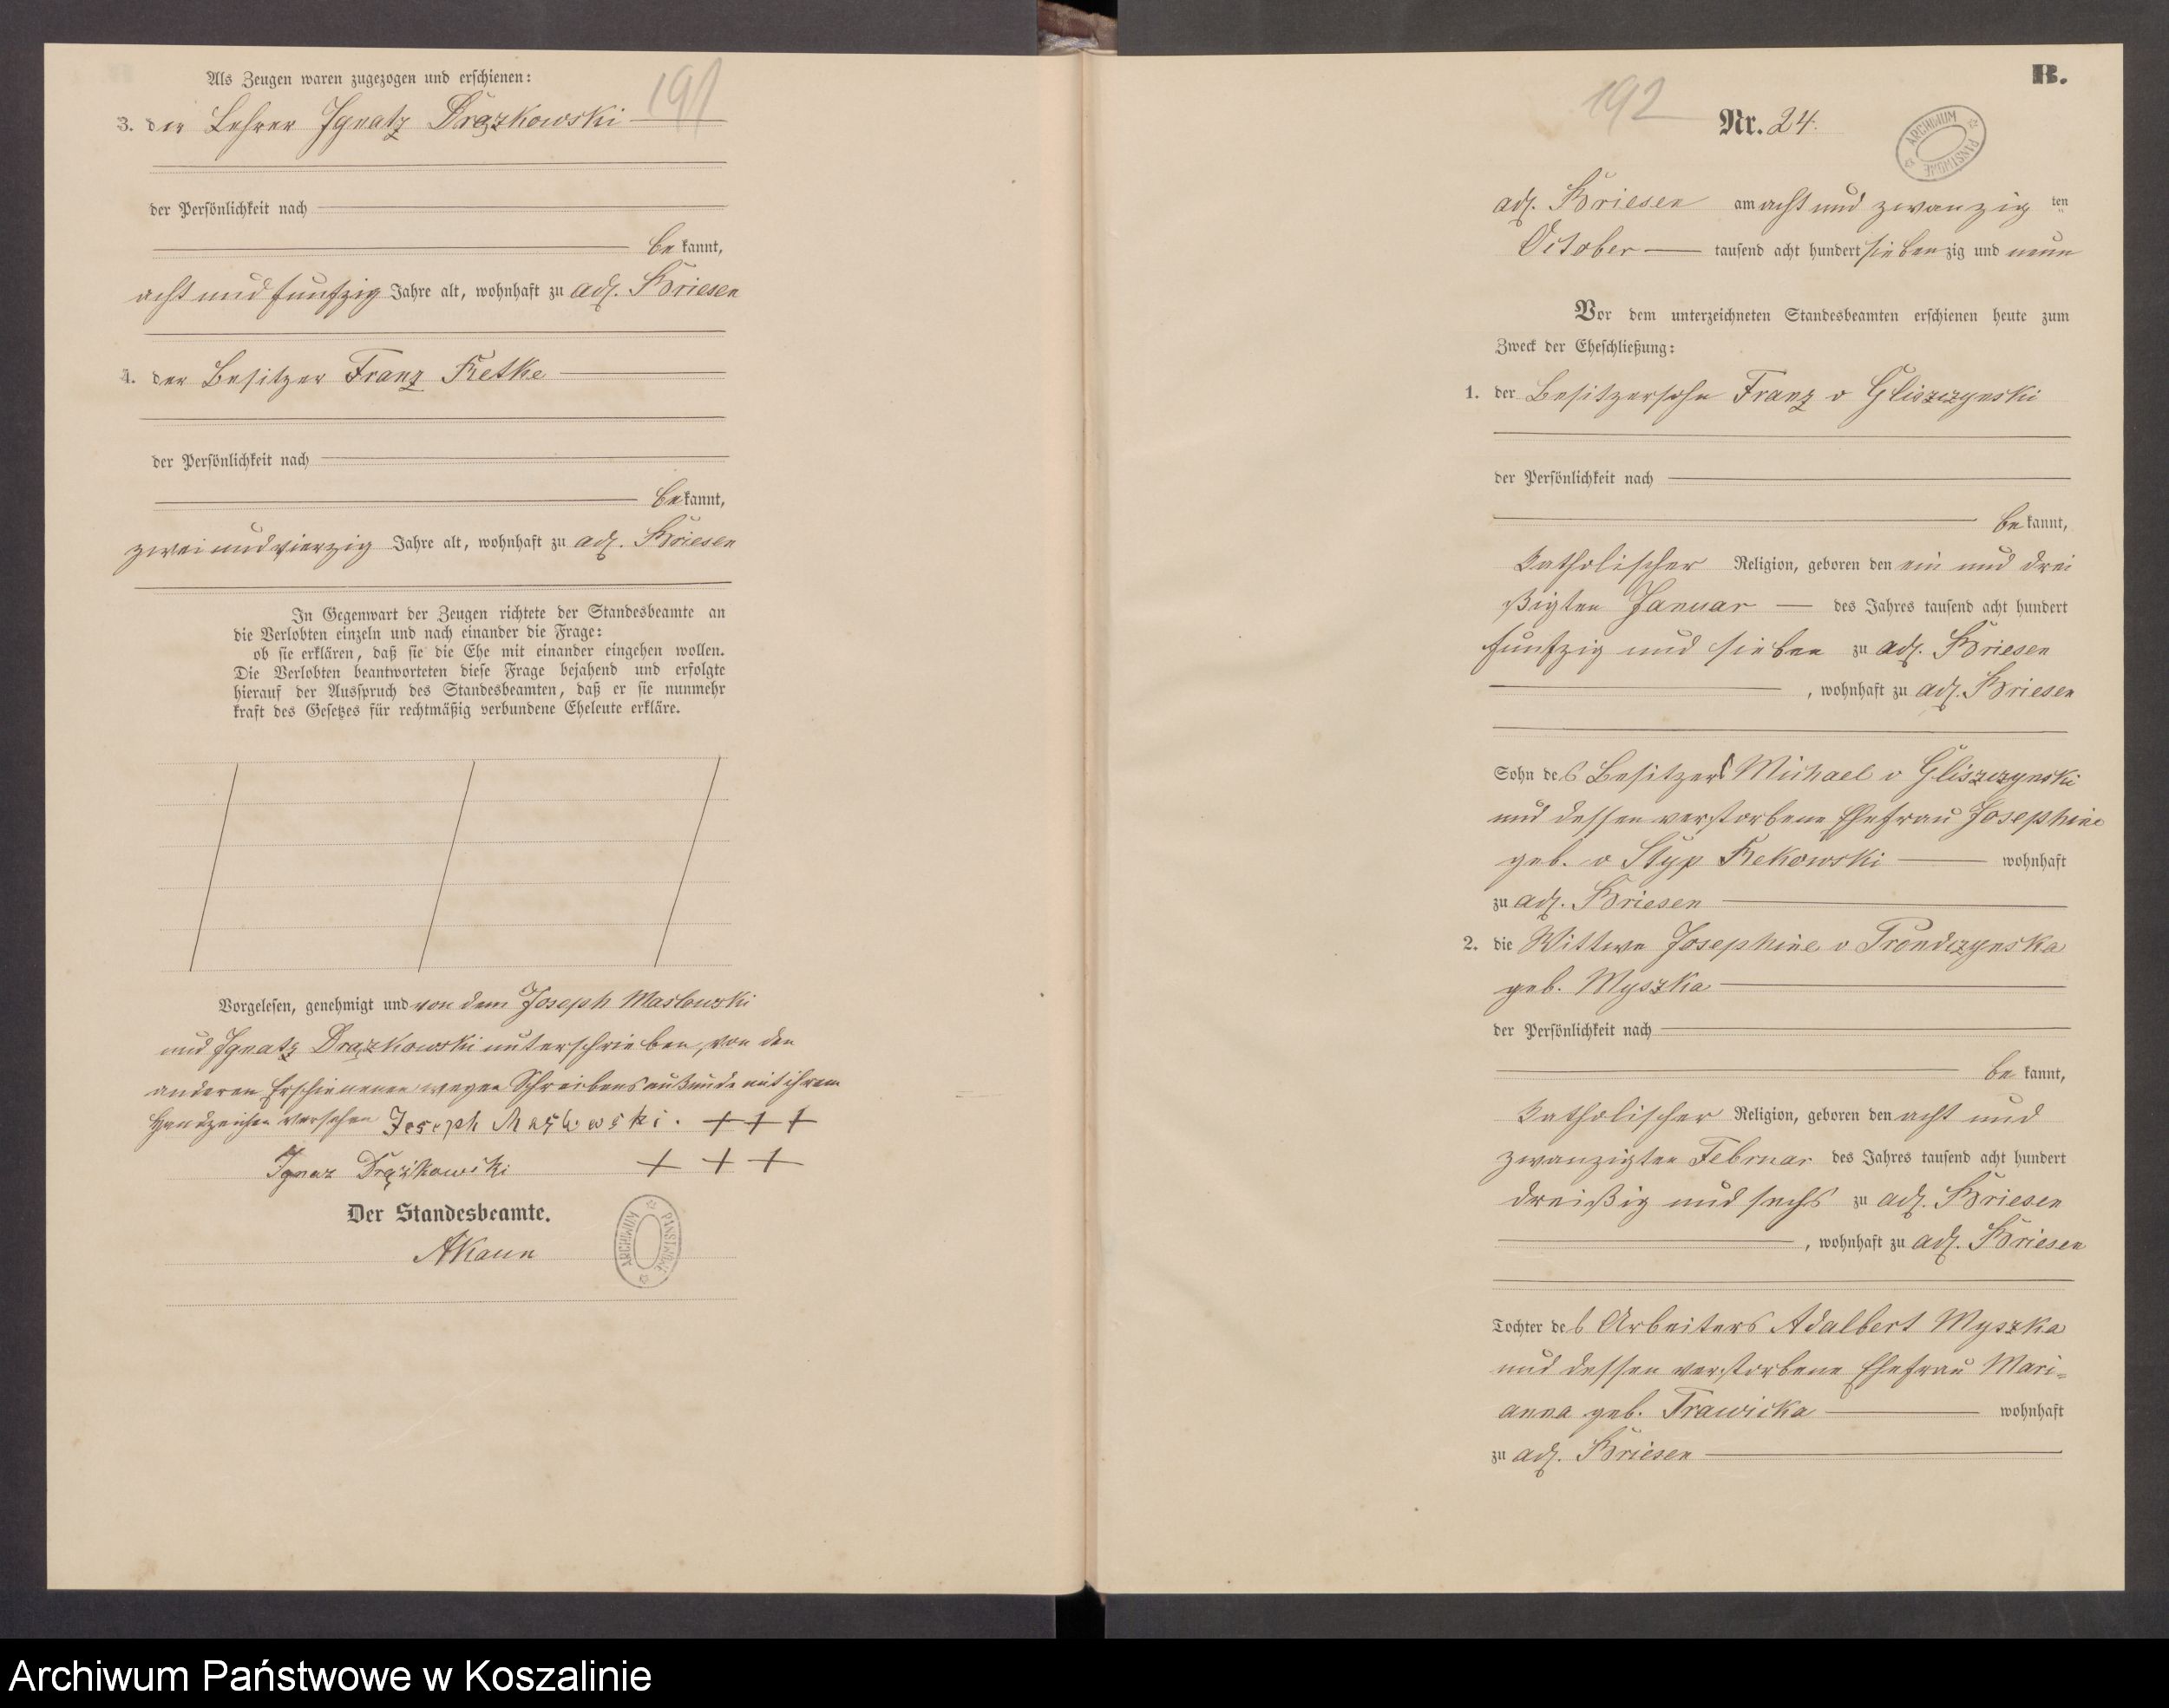 Als Zeugen waren zugezogen und erschienen:
191
3. der Lehrer Ignatz Drązkowski
der Persönlichkeit nach
bekannt,
acht und funfzig Jahre alt, wohnhaft zu adl. Briesen
4. der Besitzer Franz Retke
der Persönlichkeit nach
bekannt,
zwei und vierzig Jahre alt, wohnhaft zu adl. Briesen
In Gegenwart der Zeugen richtete der Standesbeamte an
die Verlobten einzeln und nach einander die Frage:
ob sie erklären, daß sie die Ehe mit einander eingehen wollen.
Die Verlobten beantworteten diese Frage bejahend und erfolgte
hierauf der Ausspruch des Standesbeamten, daß er sie nunmehr
kraft des Gesetzes für rechtmäßig verbundene Eheleute erkläre.
Vorgelesen, genehmigt und von dem Joseph Maslowski
und Ignatz Drązkowski unterschrieben, von den
anderen Erschienenen wegen Schreibens mit ihrem
Handzeichen versehen Joseph +++
Ignaz Drążkowski +++
Der Standesbeamte.
AKaun
ARCHIWUM PAŃSTWOWE
B.
192
Nr. 24.
ARCHIWUM PAŃSTWOWE
adl. Briesen am acht und zwanzig ten
October tausend acht hundert siebenzig und neun
Vor dem unterzeichneten Standesbeamten erschienen heute zum
Zweck der Eheschließung:
1. der Besitzersohn Franz v Gliszczynski
der Persönlichkeit nach
bekannt,
katholischer Religion, geboren den ein und drei
ßigten Januar des Jahres tausend acht hundert
funfzig und sieben zu adl. Briesen
, wohnhaft zu adl. Briesen
Sohn des Besitzers Michael v Gliszczynski
und dessen verstorbene Ehefrau Josephine
geb. v Styp Rekowski wohnhaft
zu adl. Briesen
2. die Wittwe Josephine v Prondzynska
geb. Myszka
der Persönlichkeit nach
bekannt,
katholischer Religion, geboren den acht und
zwanzigten Februar des Jahres tausend acht hundert
dreißig und sechs zu adl. Briesen
, wohnhaft zu adl. Briesen
Tochter des Arbeiters Adalbert Myszka
und dessen verstorbene Ehefrau Mari=
anna geb. Trawicka wohnhaft
zu adl. Briesen
Archiwum Państwowe w Koszalinie